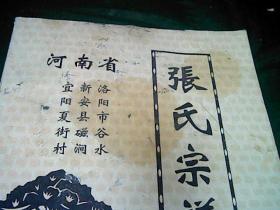 河南省
洛阳市谷水
新安县磁涧
宜阳夏街村
張氏宗